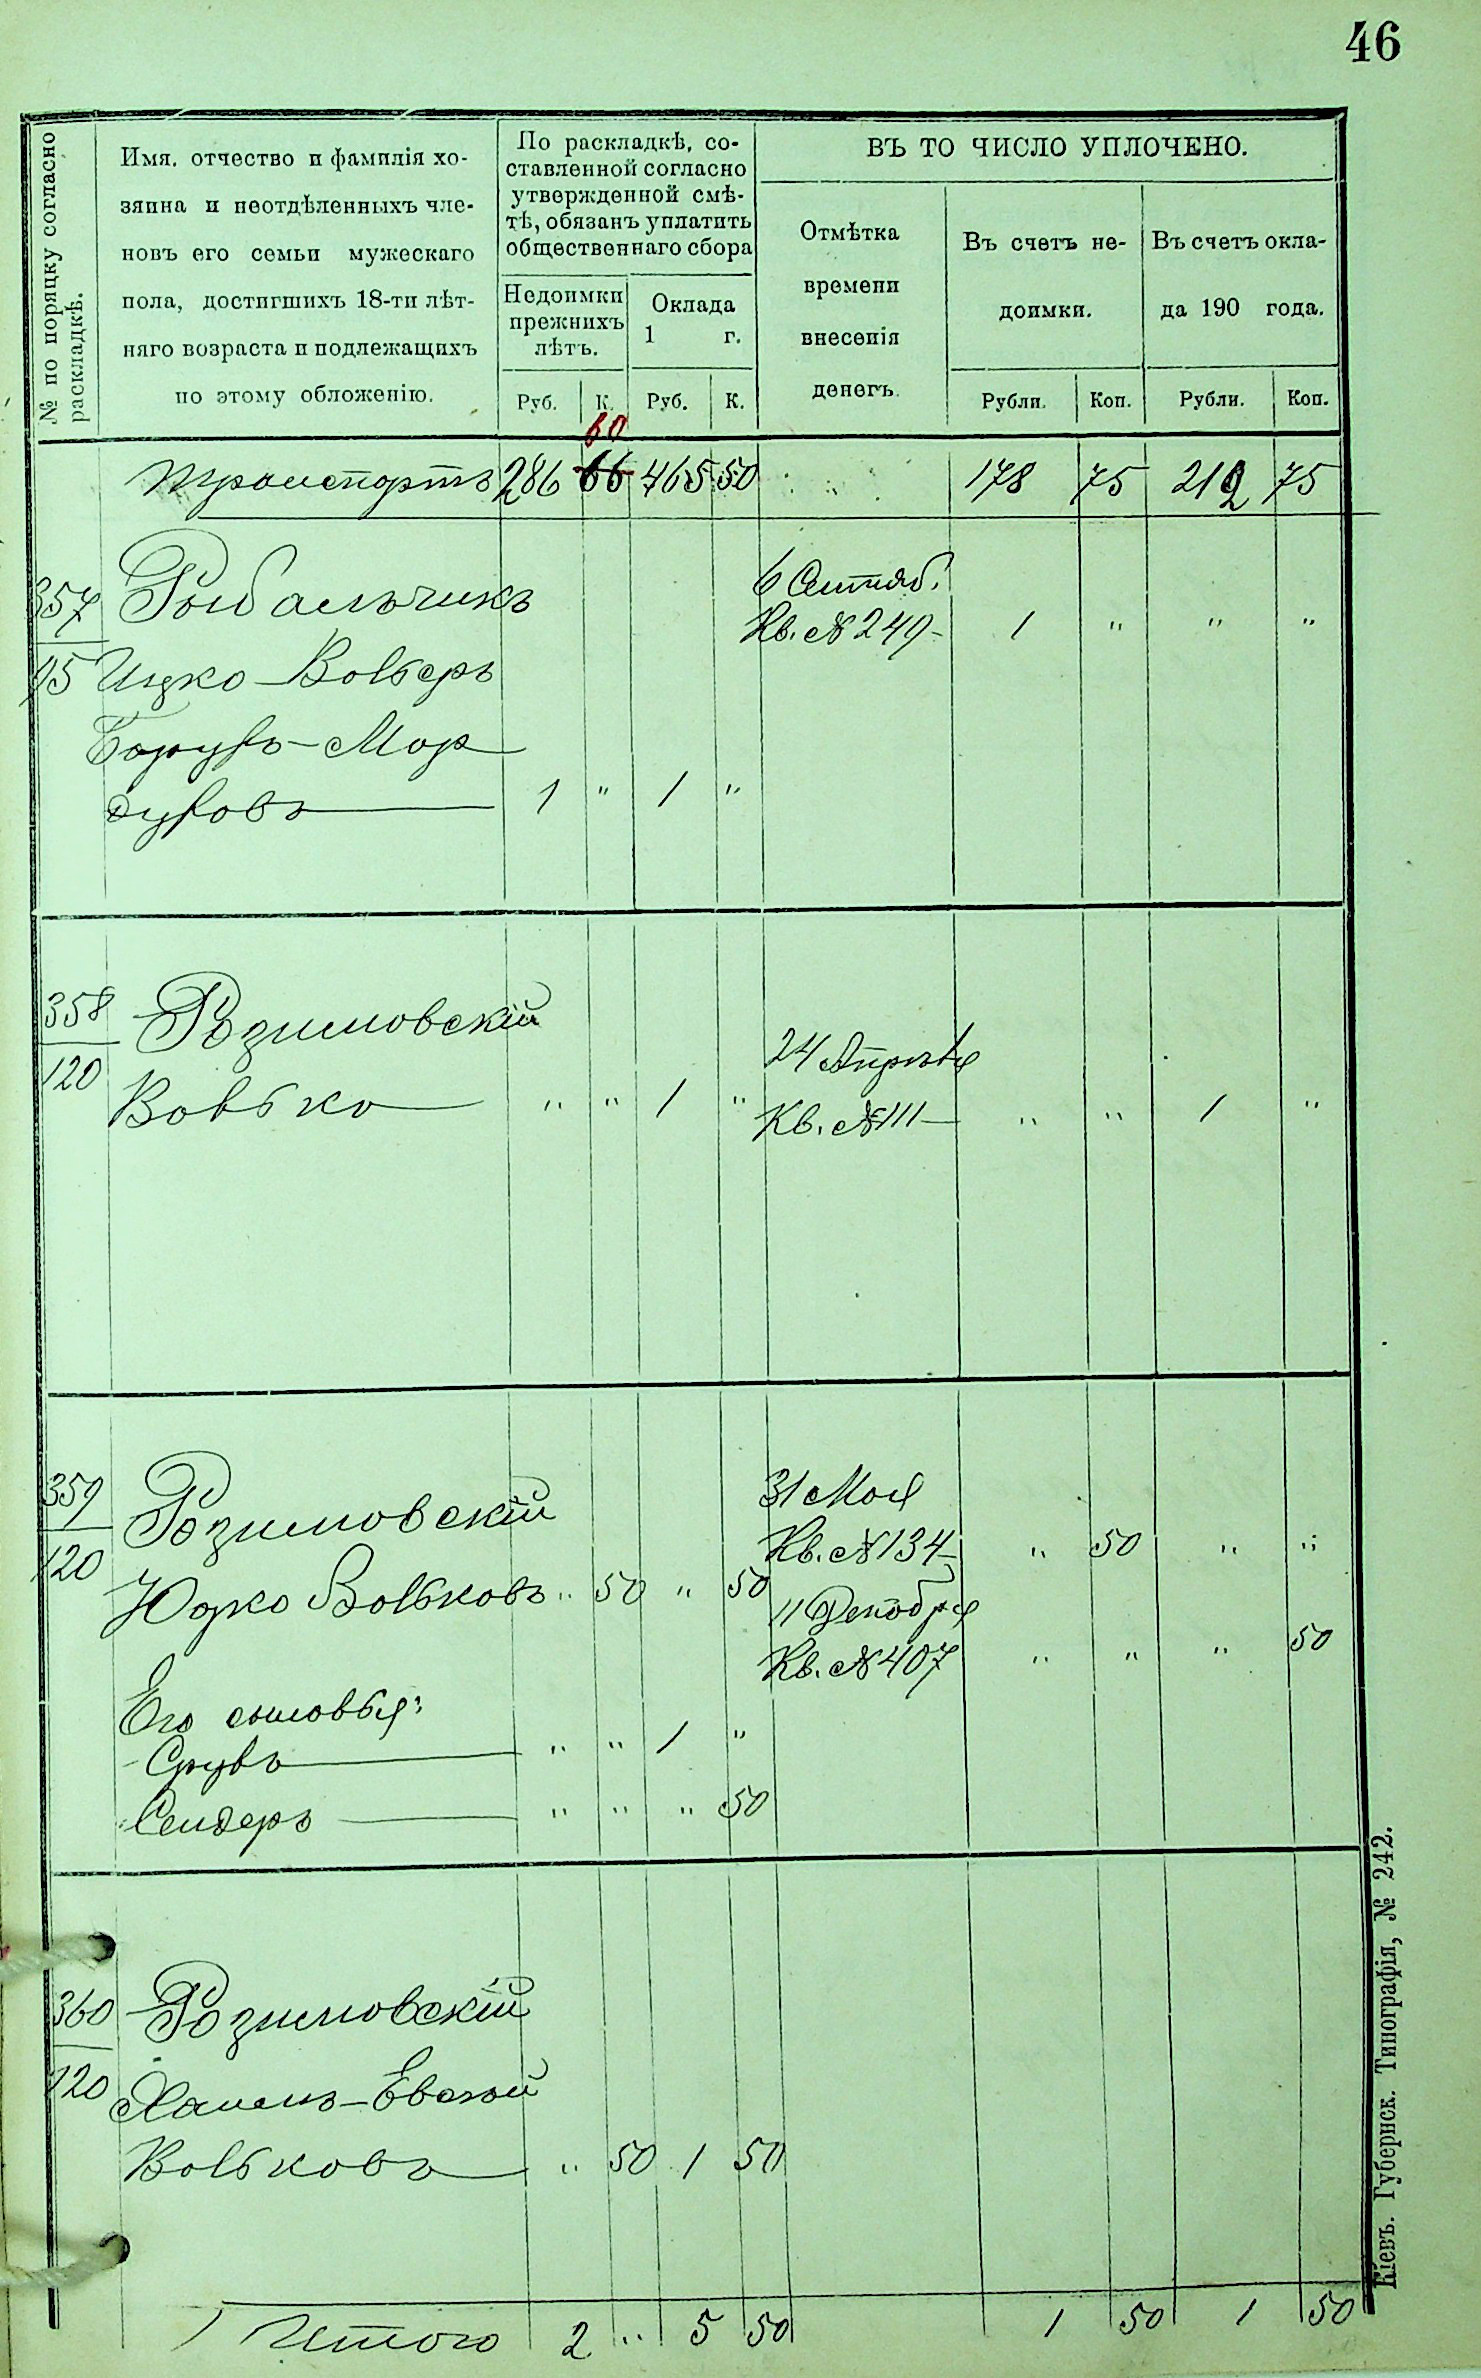 46
№ по порядку согласно
раскладкѣ.
Имя, отчество и фамилія хо-
зяина и неотдѣленныхъ чле-
новъ его семьи мужескаго
пола, достигшихъ 18-ти лѣт-
няго возраста и подлежащихъ
по этому обложенію.
По раскладкѣ, со-
ставленной согласно
утвержденной смѣ-
тѣ, обязанъ уплатить
общественнаго сбора
Недоимки
прежнихъ
лѣтъ.
Оклада
1 г.
ВЪ ТО ЧИСЛО УПЛОЧЕНО.
Отмѣтка
времени
внесенія
денегъ.
Въ счетъ не-
доимки.
Въ счетъ окла-
да 190 года.
Руб. К. Руб. К. Рубли. Коп. Рубли. Коп.
60
Транспортъ 286 66 465 50 178 75 212 75
357 Рыбальчикъ 6 Сентяб.
Кв. № 249 - 1 " " "
95 Ицко-Вольеръ
Борухъ-Мор
духовъ 1 " 1 "
358 Розимовскій
24 Апрѣля
120 Вовько " " 1 " Кв. № 111 - " " 1 "
359 Розимовскій 31 Мая
Кв. № 134 - " 50 " "
120 Юдко Вольковъ " 50 " 50 11 Декабря
Кв. № 407 " " " 50
Его сыновья:
Срулъ " " 1 "
Сендеръ " " " 50
360 Розимовскій
120 Хаимъ-Евсей
Вольковъ " 50 1 50
Итого 2 " 5 50 1 50 1 50
Кіевъ. Губернск. Типографія, № 242.